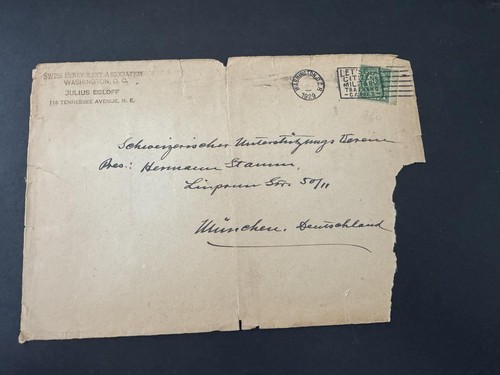 SWISS BENEVOLENT ASSOCIATION
WASHINGTON, D. C.
JULIUS EGLOFF
116 TENNESSEE AVENUE, N. E.
WASHINGTON, D.C.
1929
LET'S
CITIZENS
MILITARY
TRAINING
CAMPS
Schweizerischer Unterstützungs Verein
Pres: Hermann Stamm,
Str. 50/II
München, Deutschland